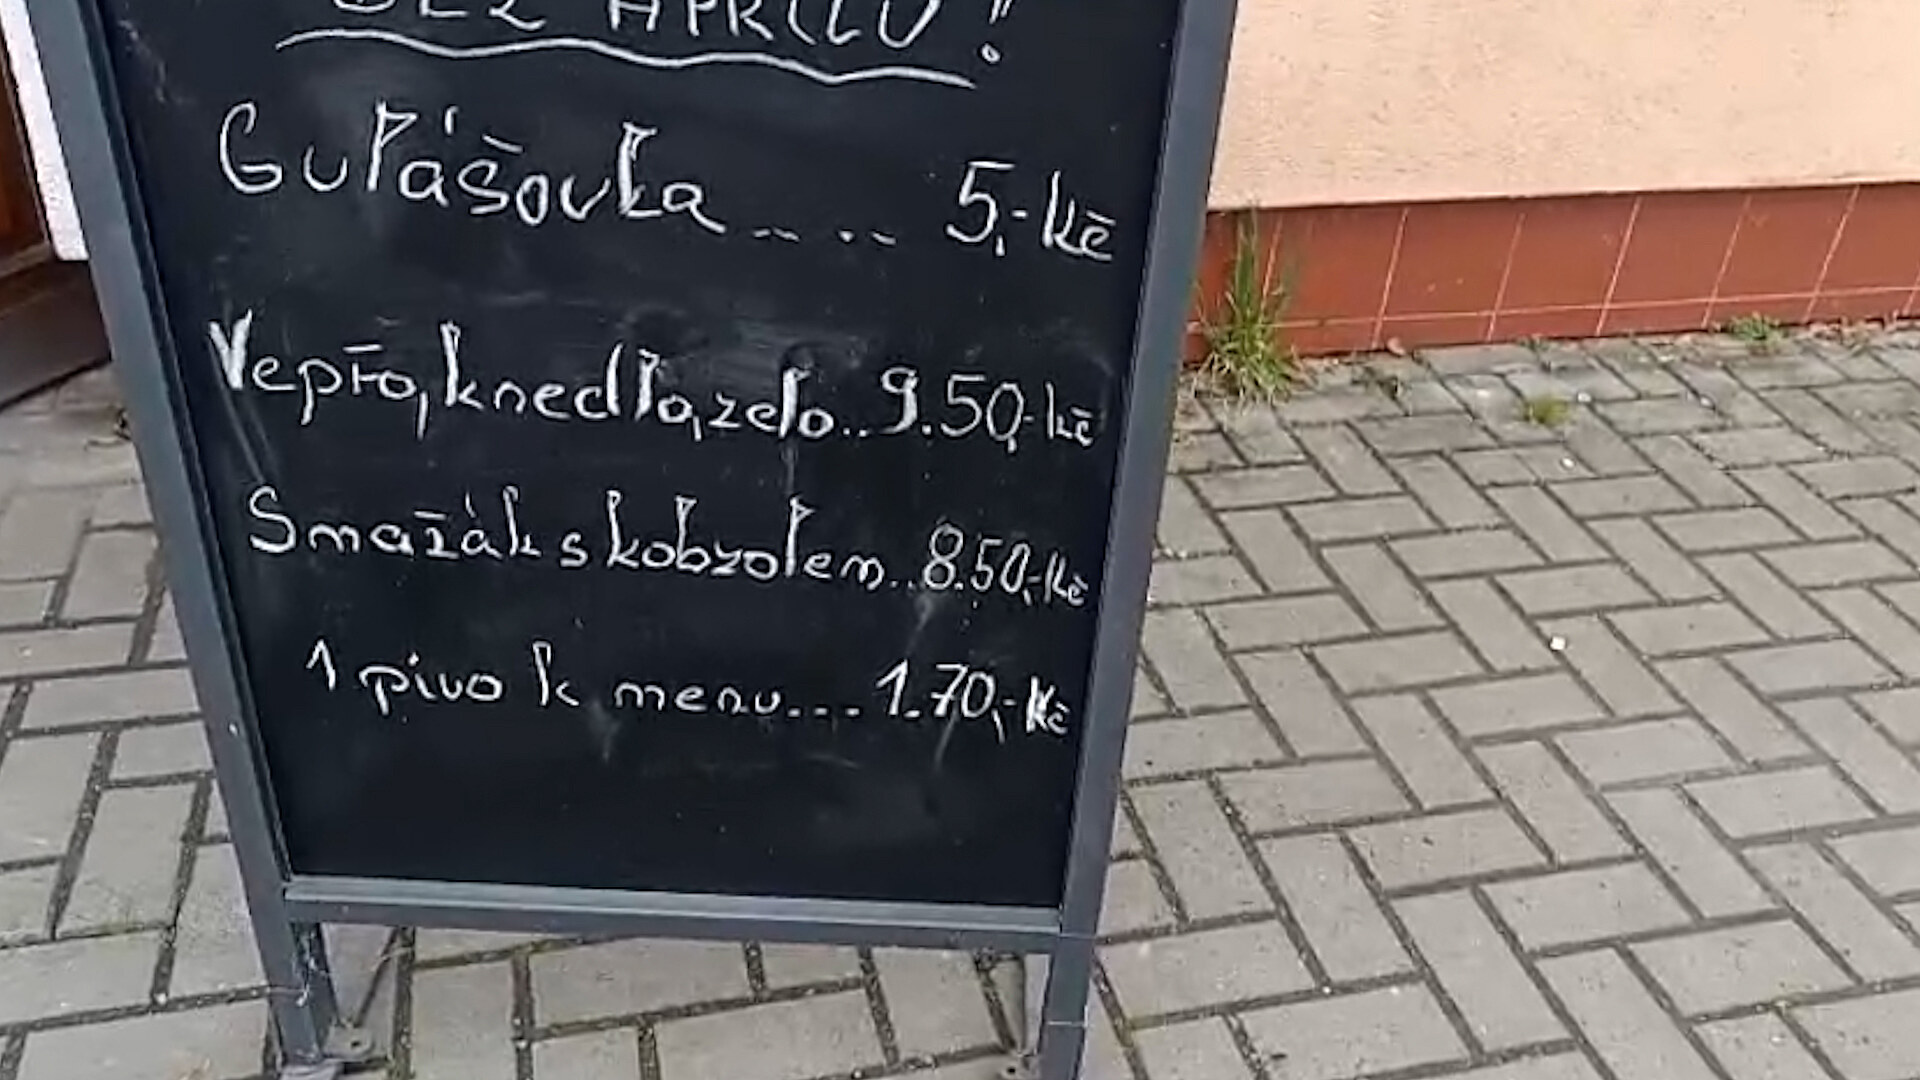 BEZ APRÍLU!
Gulášovka.... 5,-kč
Vepřo,knedlo,zelo..9.50,-kč
Smažák s kobzolem..8.50,-kč
1 pivo k menu...1.70,-kč